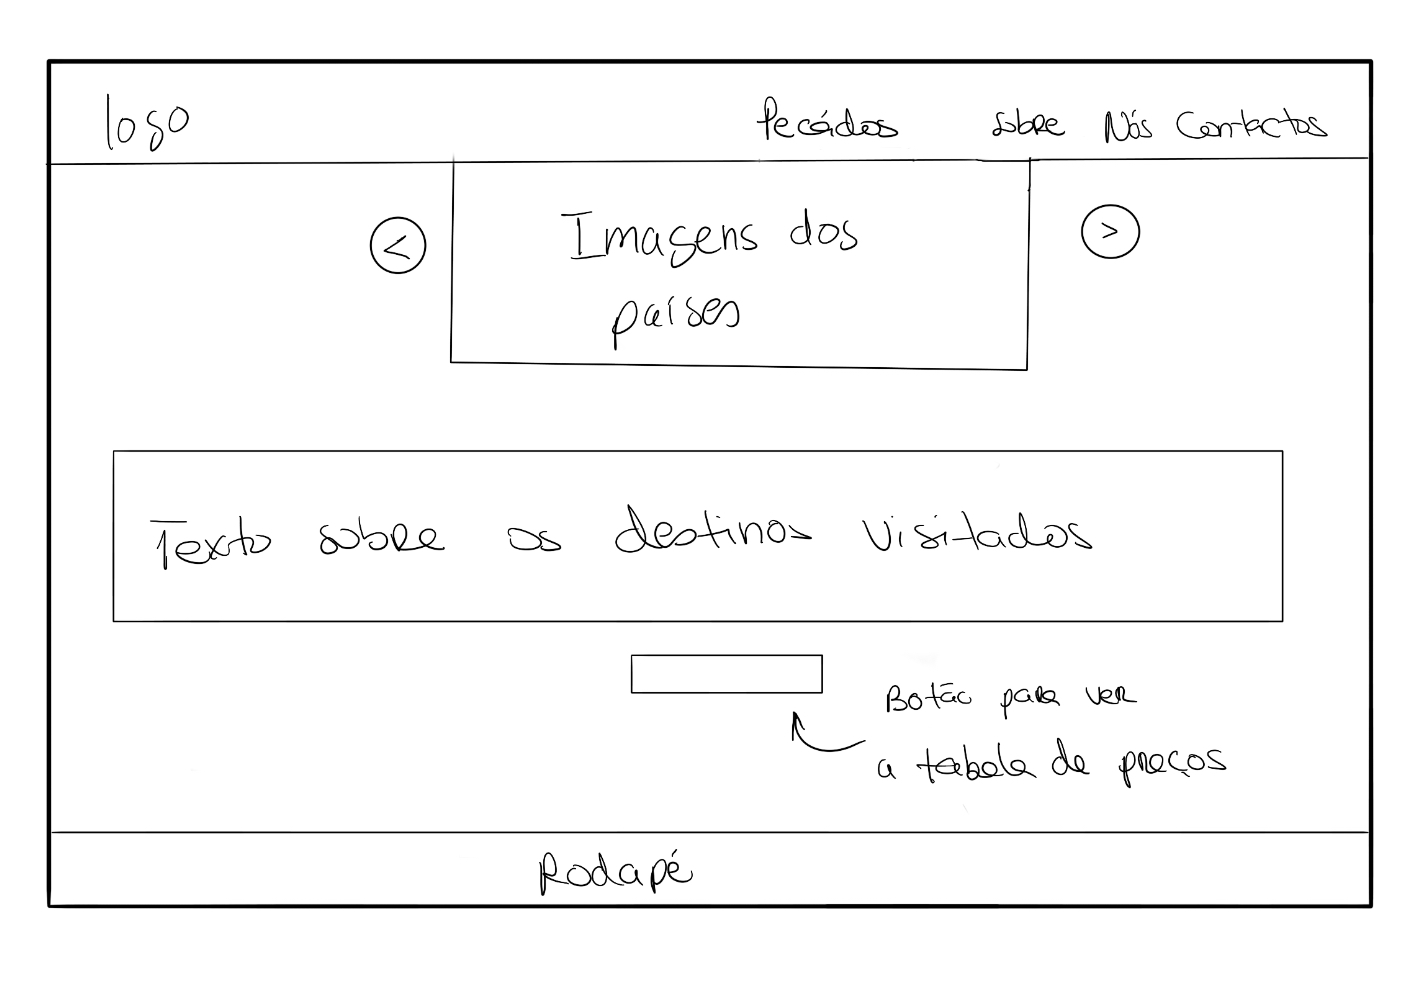 logo
Pecádos sobre Nós Contactos
<
Imagens dos
países
>
Texto sobre os destinos visitados
Botão para ver
a tabela de preços
Rodapé